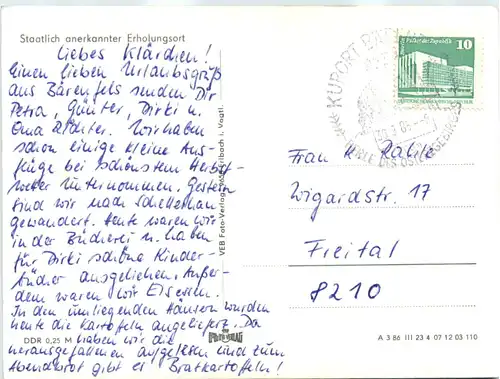 Staatlich anerkannter Erholungsort
Liebes Klärchen!
Einen lieben Urlaubsgruß
aus Bärenfels senden Dir
Petra, Günter, Dirki u.
Oma Richter. Wir haben
schon einige kleine Aus-
flüge bei schönstem Herbst-
wetter unternommen. Gestern
sind wir nach Schellerhau
gewandert. Heute waren wir
in der Bücherei u. haben
für Dirki schöne Kinder-
bücher ausgeliehen. Außer-
dem waren wir Eis essen.
In den umliegenden Häusern wurden
heute die Kartoffeln angeliefert. Da
haben wir die
herausgefallenen aufgelesen und zum
Abendbrot gibt es Bratkartoffeln!
DDR 0,25 M
VEB Foto-Verlag 9654 Erlbach i. Vogtl.
KURORT
PERLE DES OSTERZGEBIRGES
Palast der Republik
10
DEUTSCHE DEMOKRATISCHE REPUBLIK
Frau K. Rahle
Wigardstr. 17
Freital
8210
A 3 86 III 23 4 07 12 03 110